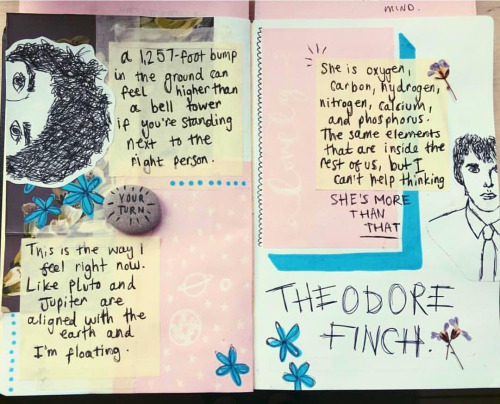 MIND.
a 1,257-foot bump
in the ground can
feel higher than
a bell tower
if you're standing
next to the
right person.
YOUR
TURN
This is the way I
feel right now.
Like Pluto and
Jupiter are
aligned with the
earth and
I'm floating.
lovely
She is oxygen,
carbon, hydrogen,
nitrogen, calcium,
and phosphorus.
The same elements
that are inside the
rest of us, but I
can't help thinking
SHE'S MORE
THAN
THAT
THEODORE
FINCH.